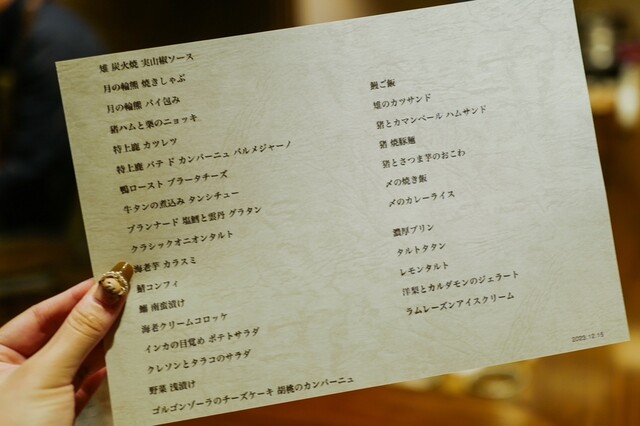 雉 炭火焼 実山椒ソース
月の輪熊 焼きしゃぶ
月の輪熊 パイ包み
猪ハムと栗のニョッキ
特上鹿 カツレツ
特上鹿 パテ ド カンパーニュ パルメジャーノ
鴨ロースト ブラータチーズ
牛タンの煮込み タンシチュー
ブランナード 塩鱈と雲丹 グラタン
クラシックオニオンタルト
海老芋 カラスミ
鯖コンフィ
鰯 南蛮漬け
海老クリームコロッケ
インカの目覚め ポテトサラダ
クレソンとタラコのサラダ
野菜 浅漬け
ゴルゴンゾーラのチーズケーキ 胡桃のカンパーニュ
飯ご飯
雉のカツサンド
猪とカマンベール ハムサンド
猪 焼豚麺
猪とさつま芋のおこわ
〆の焼き飯
〆のカレーライス
濃厚プリン
タルトタタン
レモンタルト
洋梨とカルダモンのジェラート
ラムレーズンアイスクリーム
2023.12.15